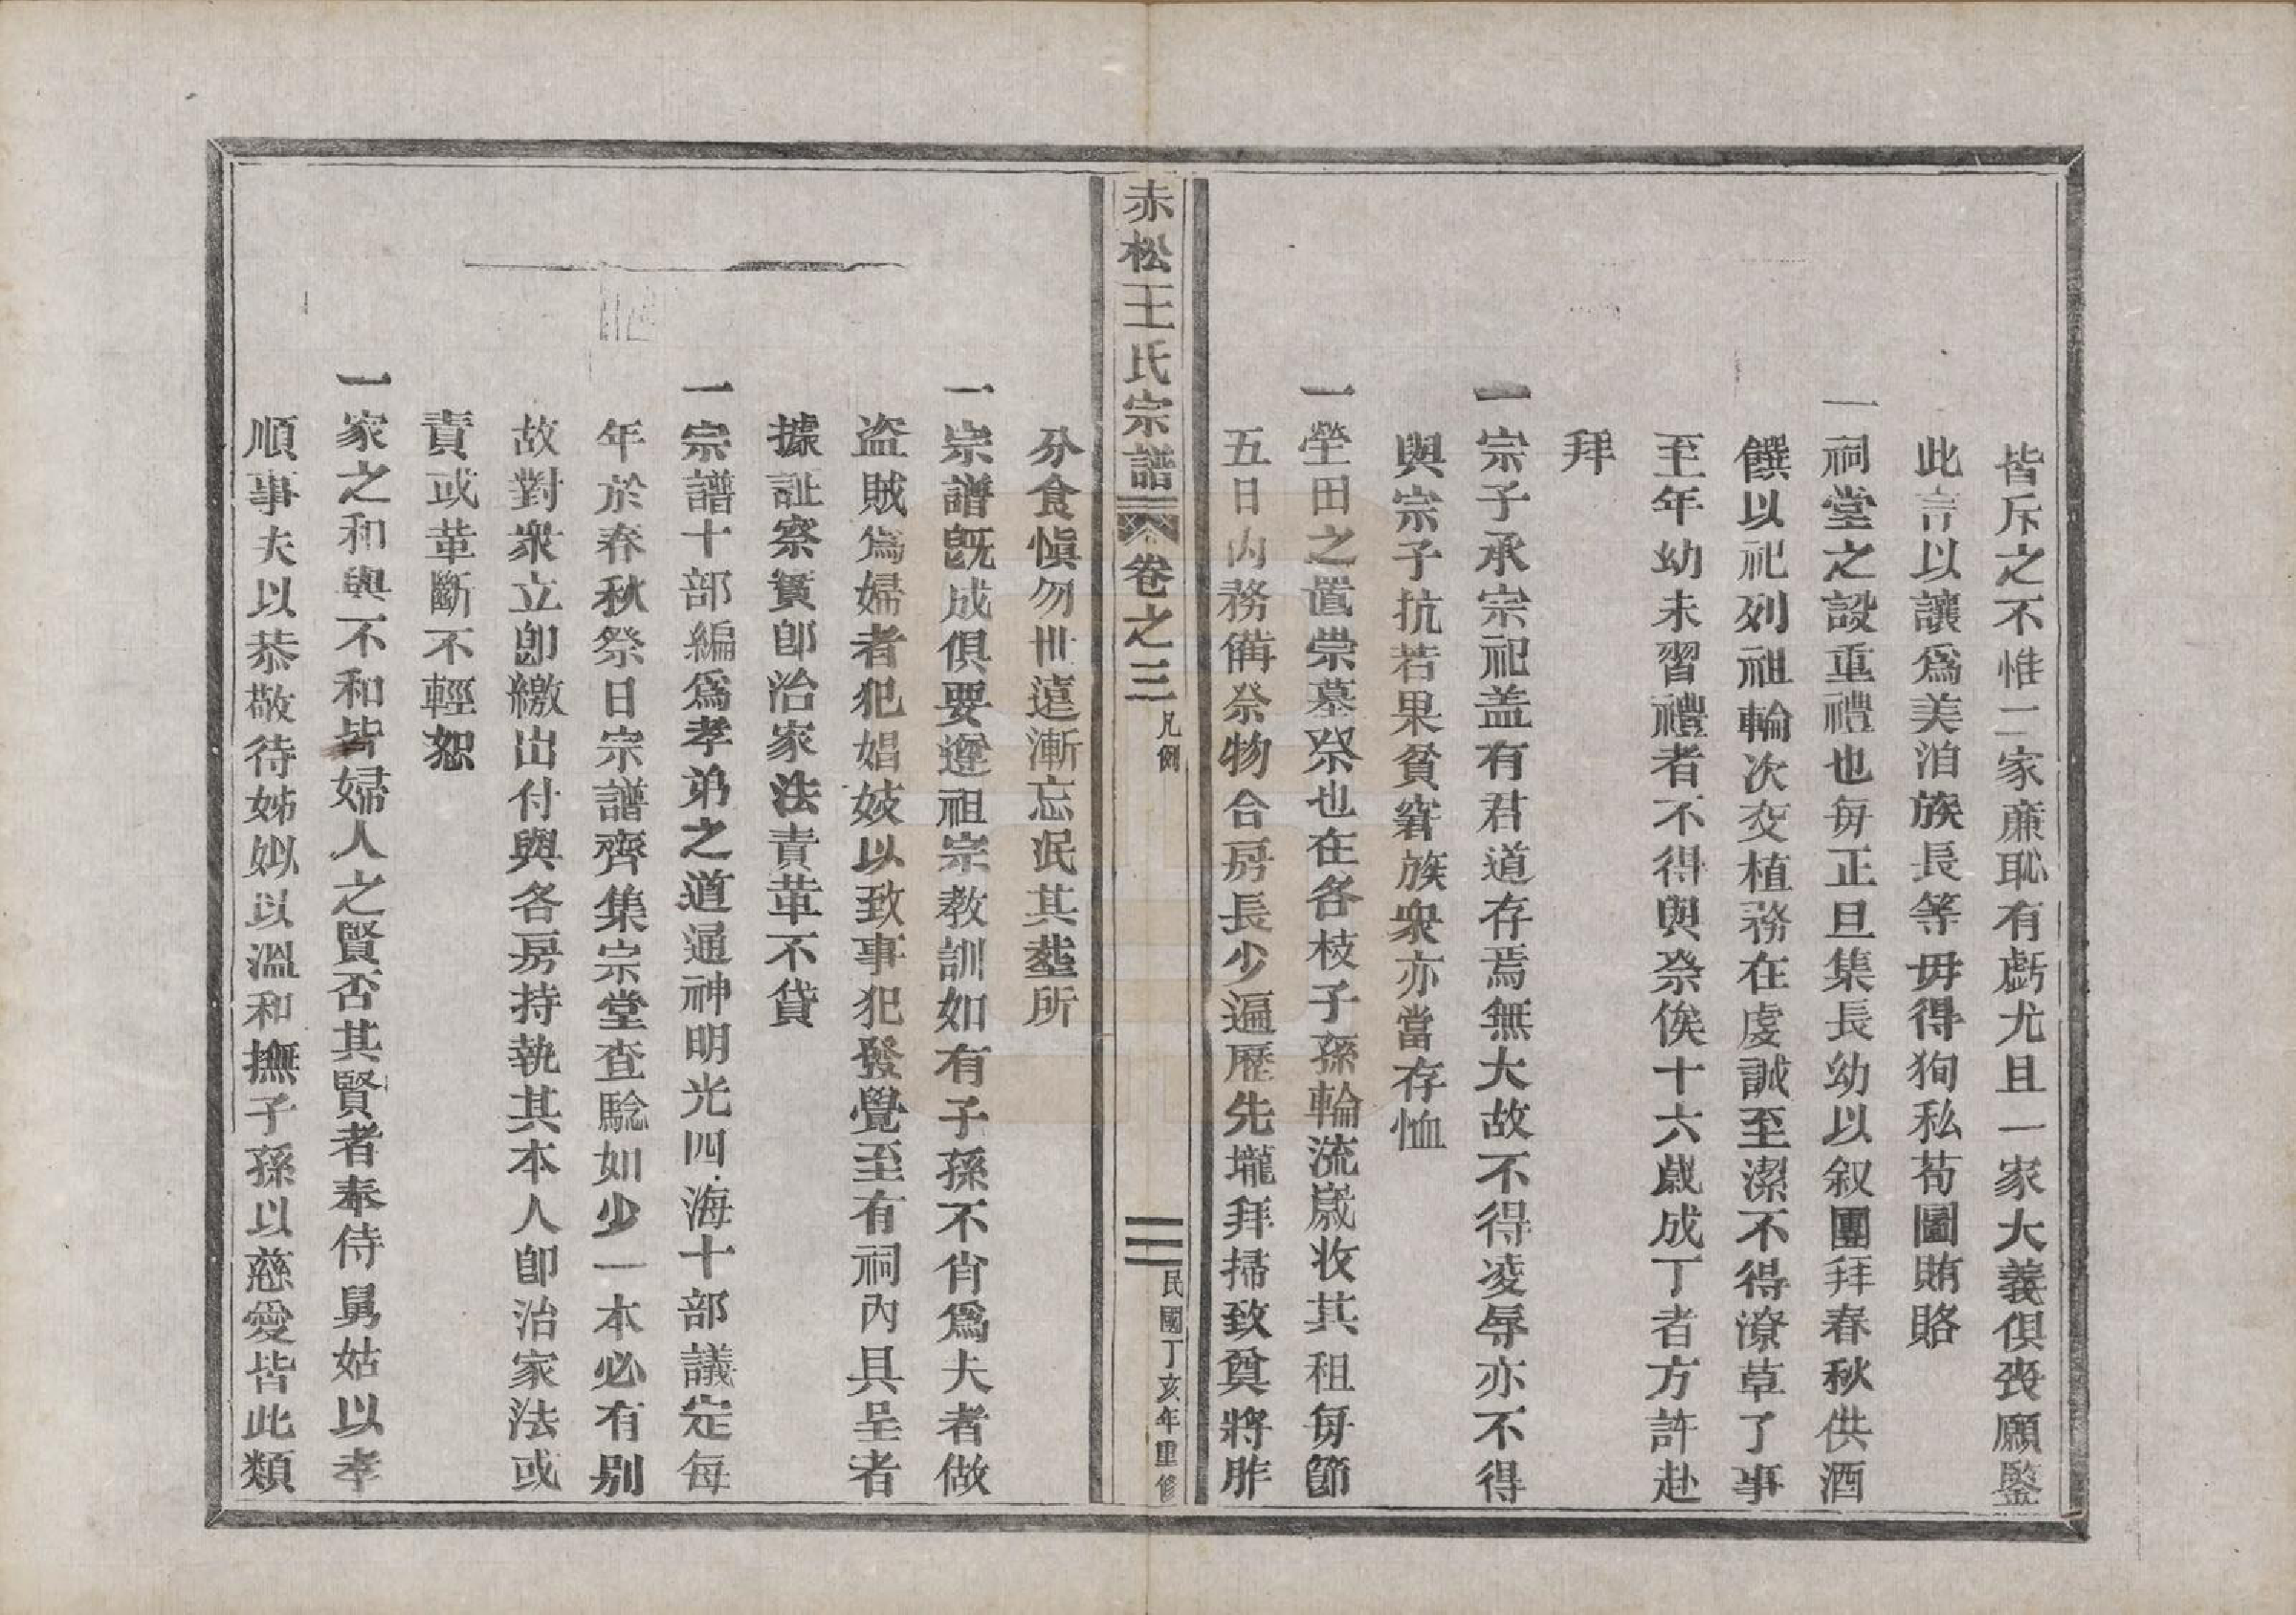 皆斥之不惟二家廉恥有虧尤且一家大義俱丧願鑒
此言以讓爲美洎族長等毋得狥私苟圖賄賂
一祠堂之設重禮也每正旦集長幼以叙團拜春秋供酒
饌以祀列祖輪次交植務在虔誠至潔不得潦草了事
至年幼未習禮者不得與祭俟十六歲成丁者方許赴
拜
一宗子承宗祀盖有君道存焉無大故不得凌辱亦不得
與宗子抗若果貧窘族衆亦當存恤
一塋田之置崇墓祭也在各枝子孫輪流歲收其租每節
五日內務備祭物合房長少遍歷先壠拜掃致奠將胙
赤松王氏宗譜 卷之三 凡例 三 民國丁亥年重修
分食愼勿卅遠漸忘泯其塟所
一宗譜旣成俱要遵祖宗教訓如有子孫不肖爲夫者做
盗賊爲婦者犯娼妓以致事犯發覺至有祠內具呈者
據訨察實卽治家法責革不貸
一宗譜十部編爲孝弟之道通神明光四海十部議定每
年於春秋祭日宗譜齊集宗堂查騐如少一本必有别
故對衆立卽繳出付與各房持執其本人卽治家法或
責或革斷不輕恕
一家之和與不和皆婦人之賢否其賢者奉侍舅姑以孝
順事夫以恭敬待姊姒以溫和撫子孫以慈愛皆此類